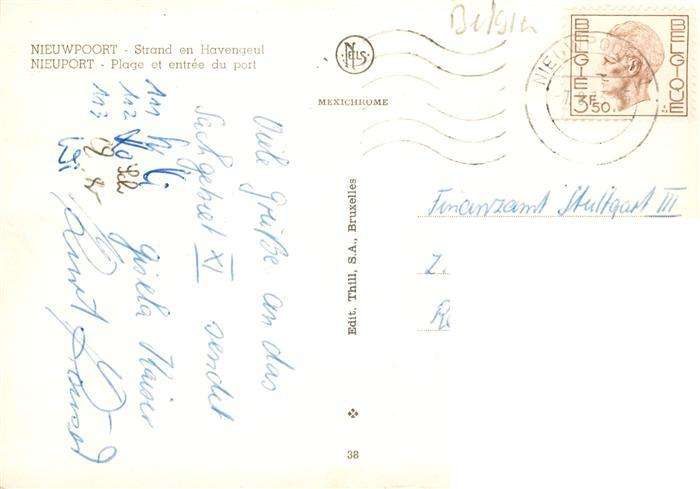 Belgien
NIEUWPOORT - Strand en Havengeul
NIEUPORT - Plage et entrée du port
NELS
MEXICHROME
BELGIE
BELGIQUE
3F50
NIEUWPOORT
Viele Grüße an das
Sachgebiet XI sendet
Gisela Kaiser
Kurt
111
112
113
Edit. Thill, S.A., Bruxelles
38
Finanzamt Stuttgart III
Z.